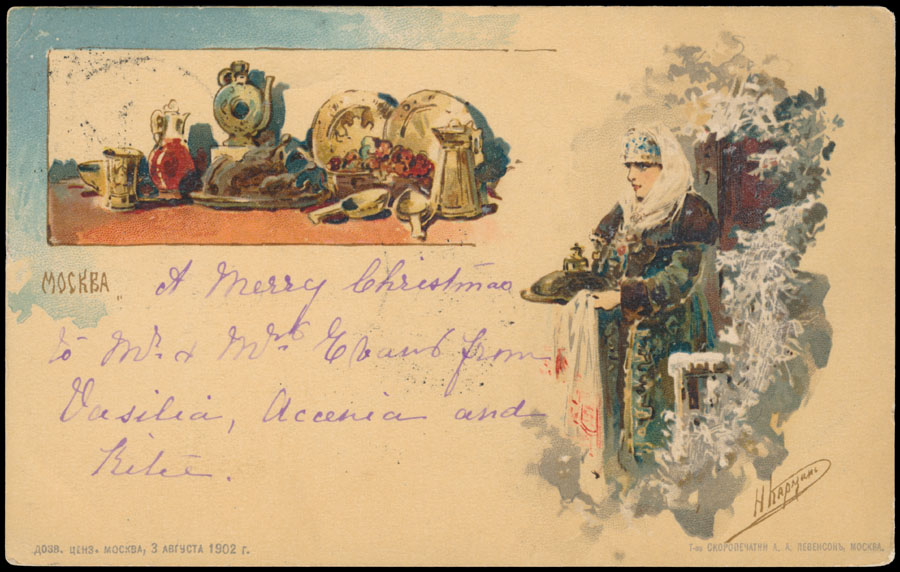 МОСКВА
A Merry Christmas
to Mr. & Mrs. Evans from
Vasilia, Accenia and
Kitie.
Н Каразинъ
ДОЗВ. ЦЕНЗ. МОСКВА, 3 АВГУСТА 1902 г.
Т-во СКОРОПЕЧАТНИ А. А. ЛЕВЕНСОНЪ, МОСКВА.